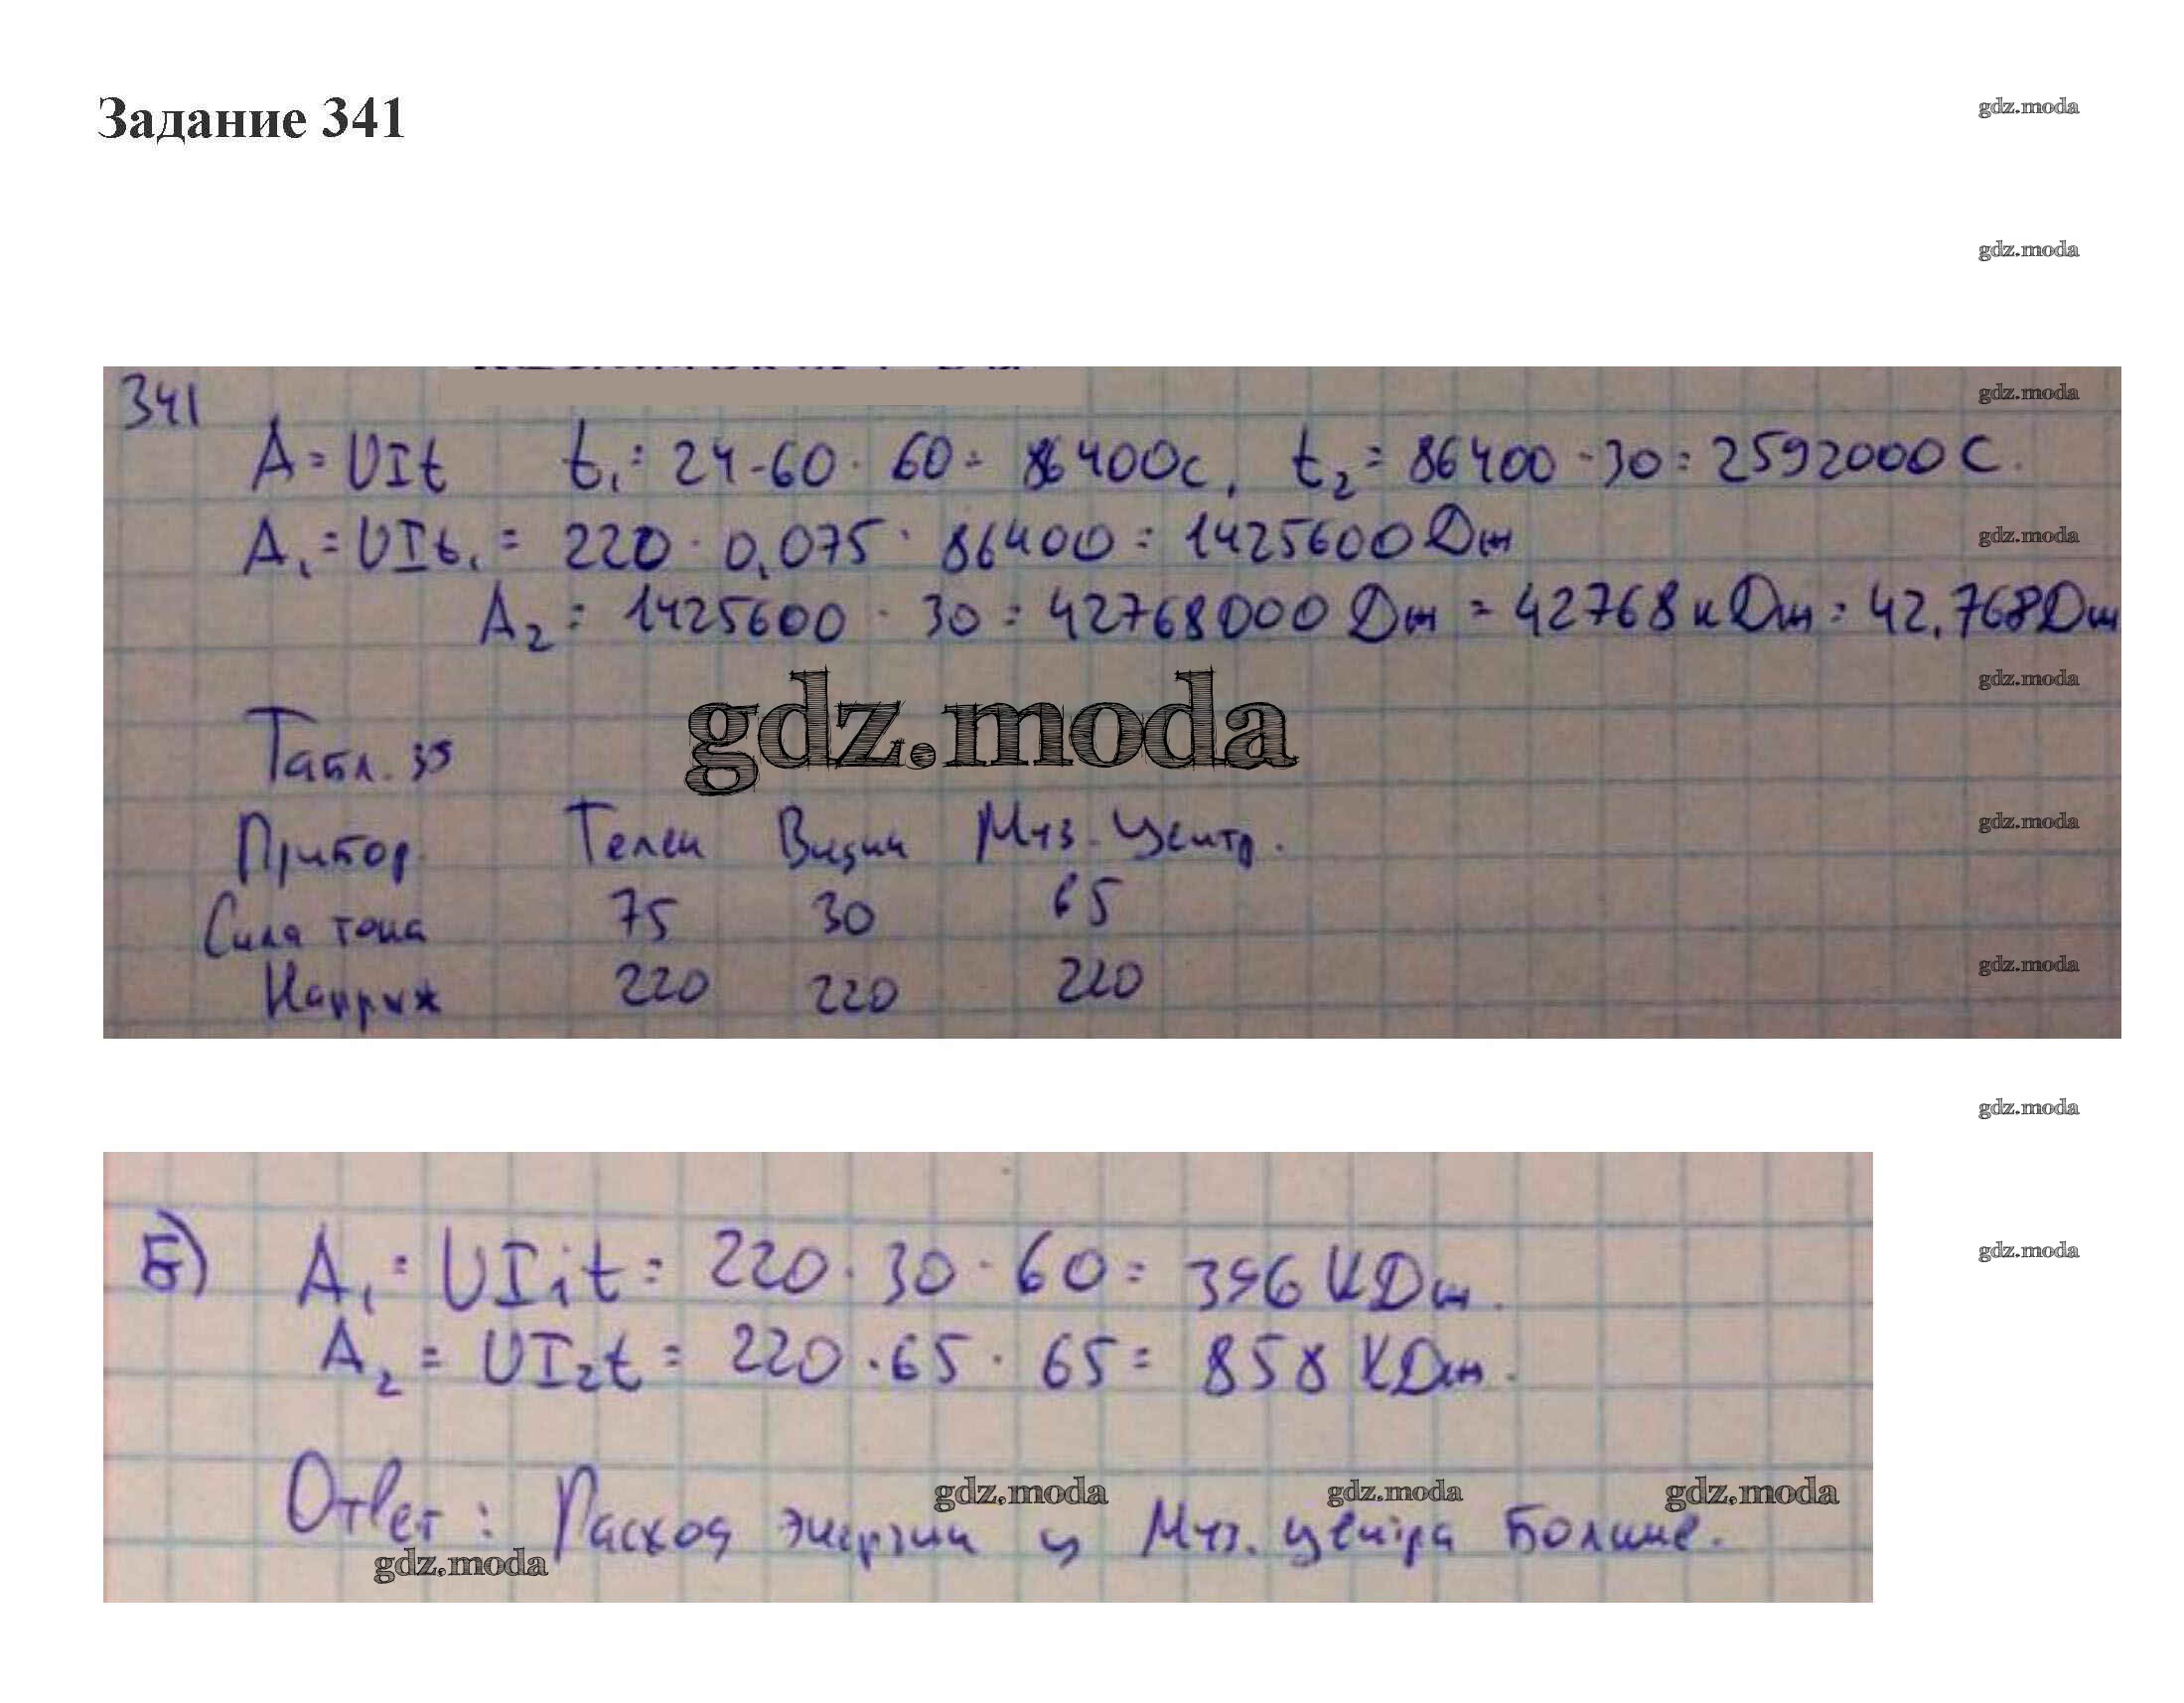 Задание 341
gdz.moda
gdz.moda
341
gdz.moda
A = UIt t₁ = 24·60·60 = 86400с, t₂ = 86400·30 = 2592000 С.
A₁ = UIt₁ = 220·0,075·86400 = 1425600 Дж
gdz.moda
A₂ = 1425600·30 = 42768000 Дж = 42768 кДж = 42,768Дж
gdz.moda
gdz.moda
Табл. 39
Прибор Телеи Видии Муз. Центр.
gdz.moda
Сила тока 75 30 65
Напряж 220 220 220
gdz.moda
gdz.moda
Б) A₁ = UI₁t = 220·30·60 = 396 КДж.
gdz.moda
A₂ = UI₂t = 220·65·65 = 858 КДж.
gdz.moda gdz.moda gdz.moda
Ответ: Расход энергии у Муз. центра Больше.
gdz.moda